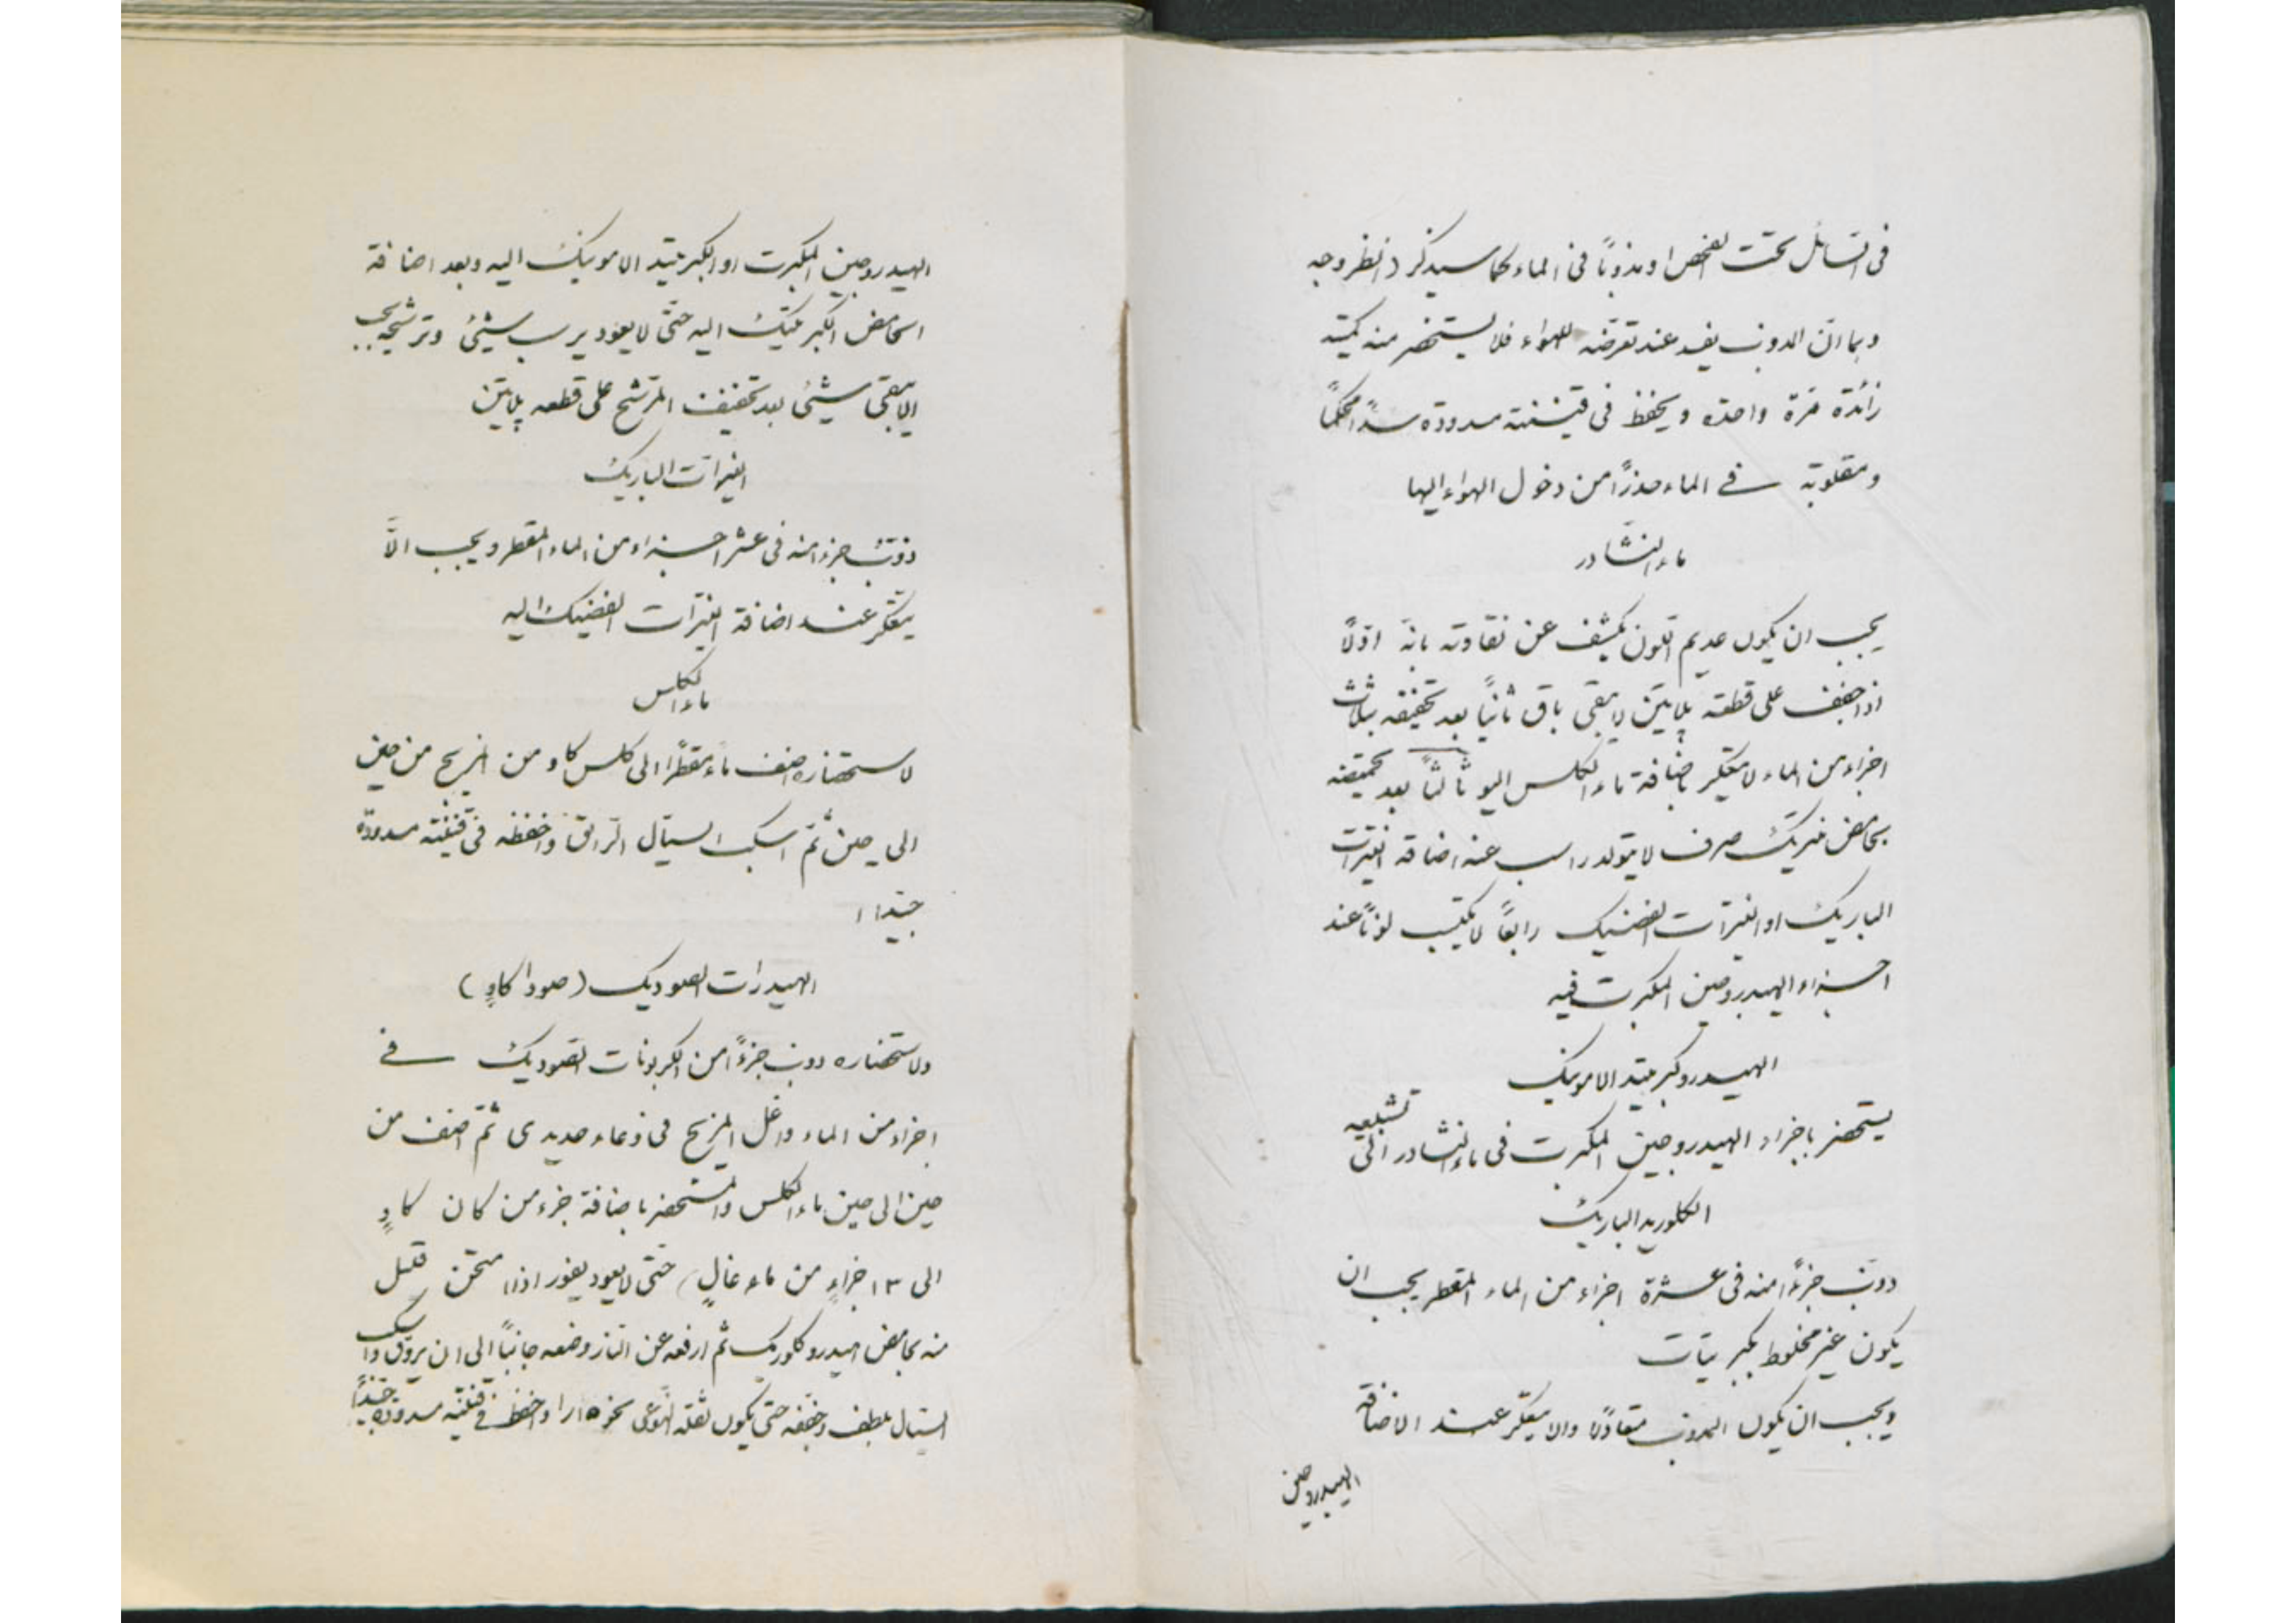 فى السائل تحت الفحص او مذوبًا فى الماء كما سيذكر (انظر وجه
وبما ان المذوب يفسد عند تعرضه للهواء فلا يستحضر منه كمية
زائدة مرة واحدة ويحفظ فى قنينة مسدودة سدًا محكمًا
ومقلوبة فى الماء حذرًا من دخول الهواء اليها
ماء النشادر
يجب ان يكون عديم اللون يكشف عن نقاوته بانه اوّلًا
اذا جفف على قطعة پلاتين لا يبقى باق ثانيًا بعد تخفيفه بثلاث
اجزاء من الماء لا يتعكر باضافة ماء الكلس اليه ثالثًا بعد تحميضه
بحامض نتريك صرف لا يتولد راسب عند اضافة النيترات
الباريك او النيترات الفضيك رابعًا لا يكتسب لونًا عند
اجراء الهيدروجين المكبرت فيه
الهيدروكبريتيد الامونيك
يستحضر باجراء الهيدروجين المكبرت فى ماء النشادر الى تشبعه
الكلوريد الباريك
ذوّب جزءًا منه فى عشرة اجزاء من الماء المقطر يجب ان
يكون غير مخلوط بكبريتات
ويجب ان يكون المذوب متعادلًا والا يتعكر عند الاضافة
الهيدروجين
الهيدروجين المكبرت او الكبريتيد الامونيك اليه وبعد اضافة
الحامض الكبريتيك اليه حتى لا يعود يرسب شيئ وترشيحه يجب
الا يبقى شيئ بعد تجفيف المترشح على قطعه پلاتين
النيترات الباريك
ذوّب جزءا منه فى عشر اجزاء من الماء المقطر ويجب الّا
يتعكر عند اضافة النيترات الفضيك اليه
ماء الكلس
لاستحضاره اضف ماءً مقطرًا الى كلس كاو من المزيج من حين
الى حين ثمّ اسكب السيّال الرائق واحفظه فى قنينة مسدودة
جيّدا
الهيدرات الصوديك (صودا كاوٍ)
ولاستحضاره ذوب جزءًا من الكربونات الصوديك فى
اجزاء من الماء واغل المزيج فى وعاء حديدى ثمّ اضف من
حين الى حين ماء الكلس والمستحضر باضافة جزء من كان كاوٍ
الى ٣ اجزاءٍ من ماء غالٍ) حتى لا يعود يفور اذا امتحن قليل
منه بحامض هيدروكلوريك ثم ارفعه عن النار وضعه جانبًا الى ان يروّق واسكب
السيال بلطف وخففه حتى يكون ثقله النوعى نحو واحفظ فى قنينة مسدودة جيّدًا